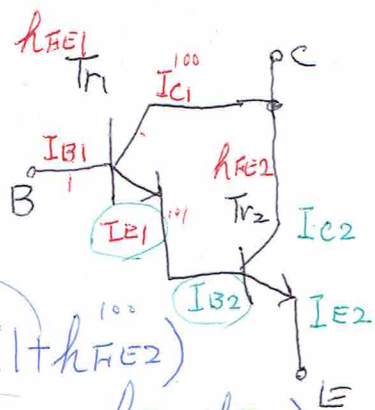 hFE1
Tr1
IC1
100
C
IB1
1
B
hFE2
Tr2
IE1
101
IC2
IB2
IE2
100
(1+hFE2)
E